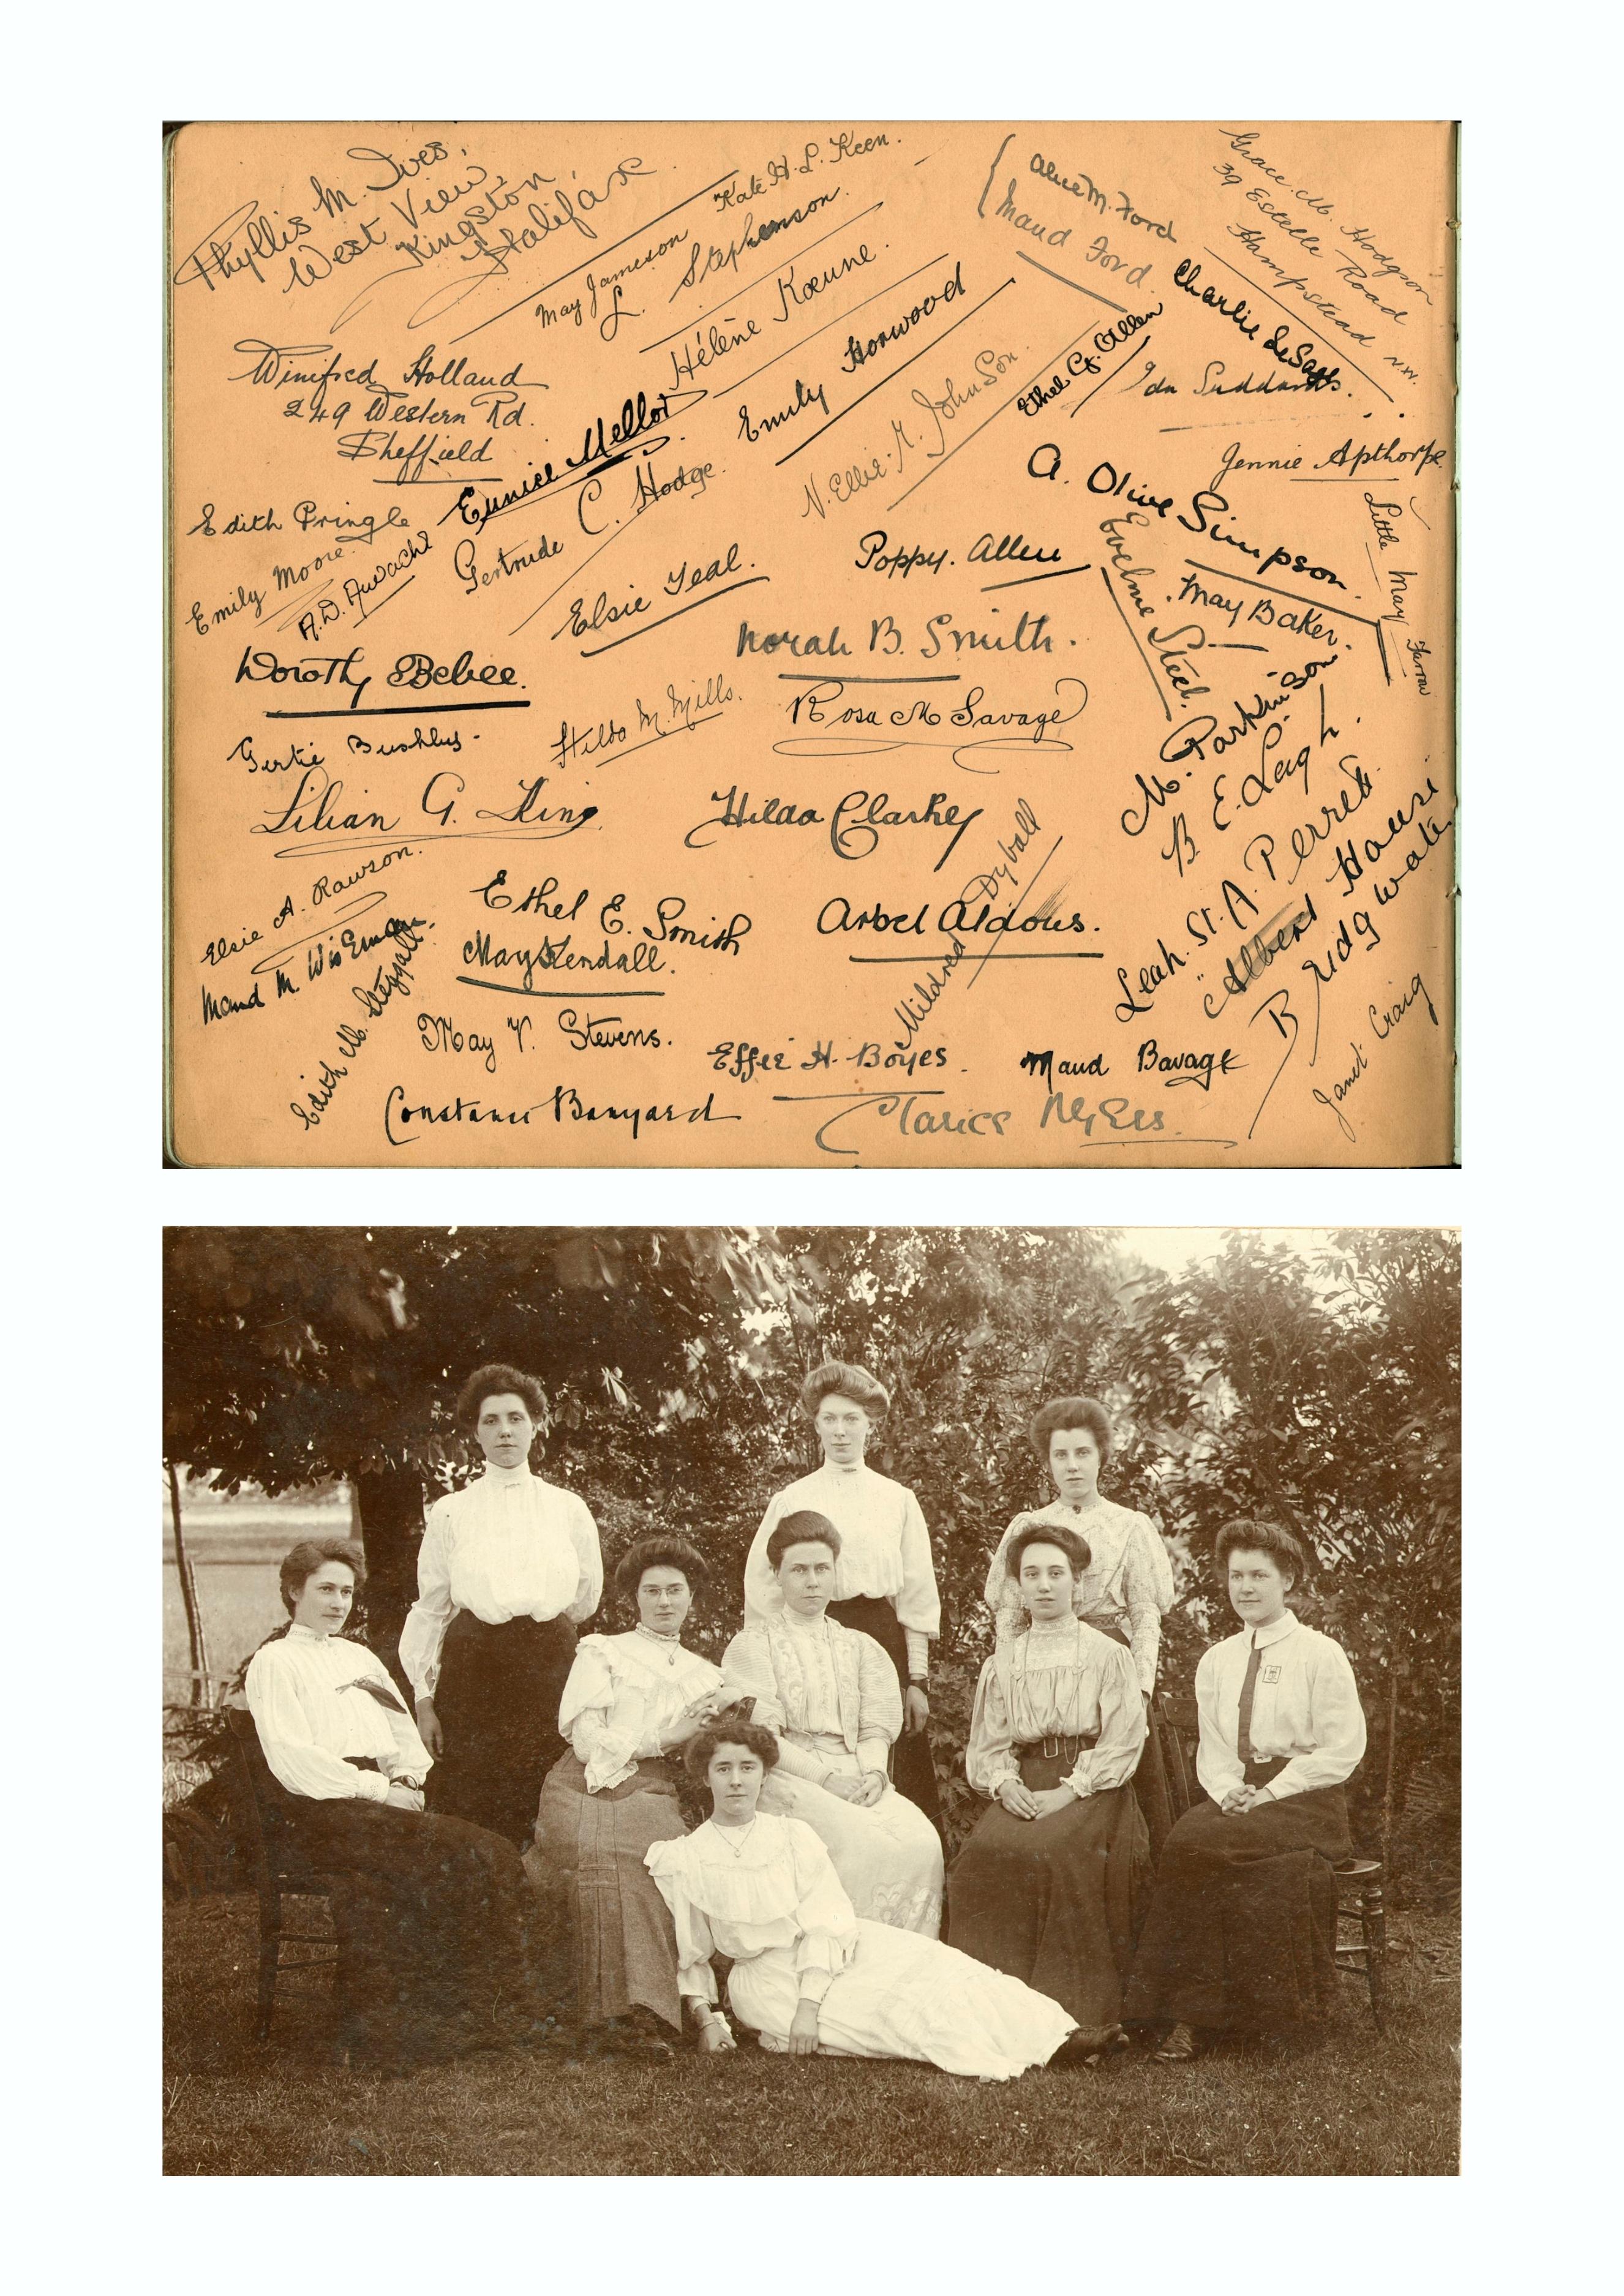 Phyllis M. Ives,
West View,
Kingston,
Halifax
May Jameson
Kate H. L. Keen.
L. Stephenson.
Hélène Kœune.
Alice M. Ford
Maud Ford.
Grace. M. Hodgson
39 Estelle Road
Hampstead N.W.
Winifred Holland
249 Western Rd.
Sheffield
Eunice Mellor
Emily Horwood
N. Ellie. M. Johnson.
Ethel G. Allen
Charlie
Ida Suddards.
Jennie Apthorpe
Edith Pringle
Emily Moore.
Gertrude C. Hodge.
Elsie Teal.
Poppy. Allen
A. Olive Simpson.
Little May Farrow
Eveline Steel.
May Baker.
Dorothy Bebee.
Norah B. Smith.
Hilda M. Mills.
Rosa M Savage
M. Parkinson
B E. Leigh.
Gertie
Lilian G. King.
Hilda Clarke
Elsie A. Rawson.
Maud M. Wiseman
Ethel E. Smith
May Kendall.
Mildred Dyball
Arbel Aldous.
Leah. St. A. Perrett.
"Albert House
Bridgwater
Edith M. Steggall.
May V. Stevens.
Effie H. Boyes.
Maud Bavage
Janet Craig
Constance Banyard
Clarice Myers.